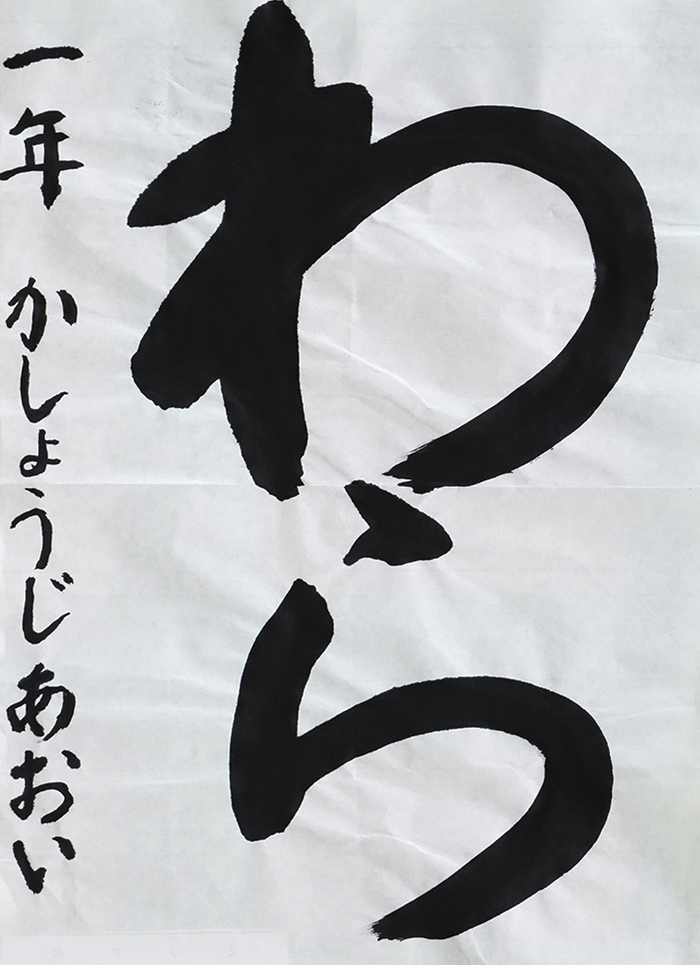 わら
一年 かしょうじ あおい